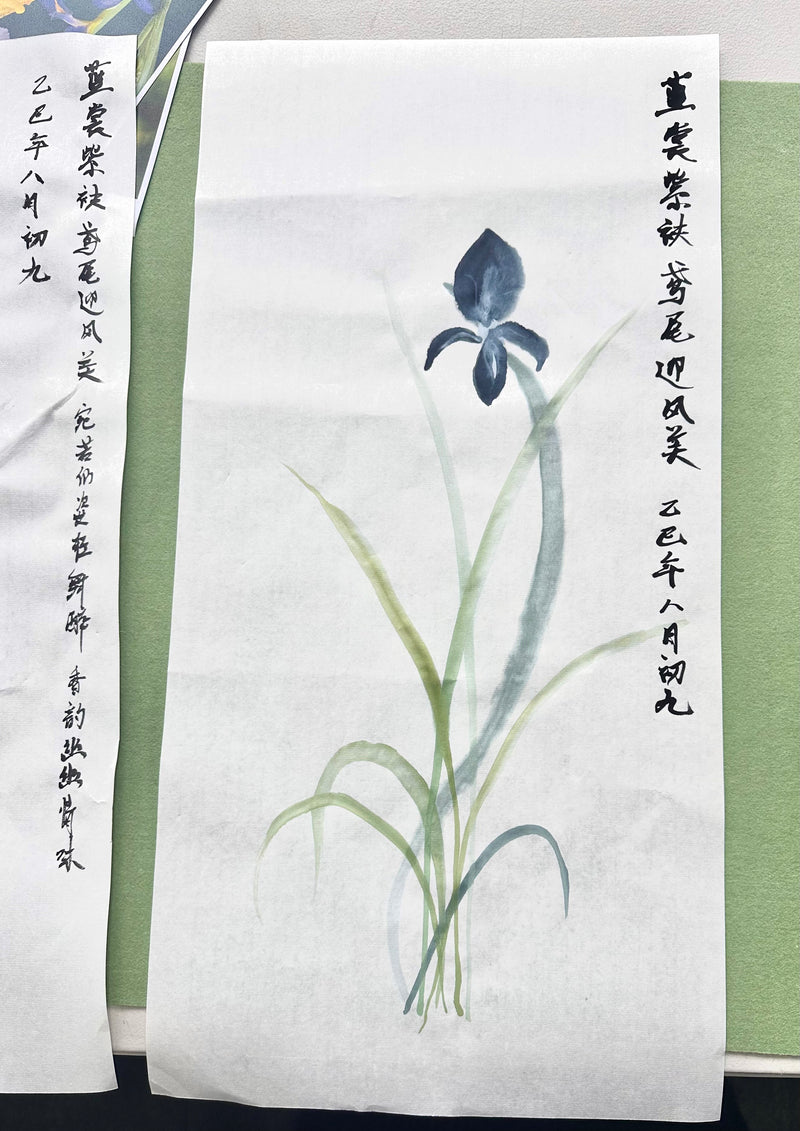 蓝裳紫袂 鸢尾迎风美 乙巳年八月初九
蓝裳紫袂 鸢尾迎风美 宛若仙姿轻舞醉 香韵幽幽
乙巳年八月初九